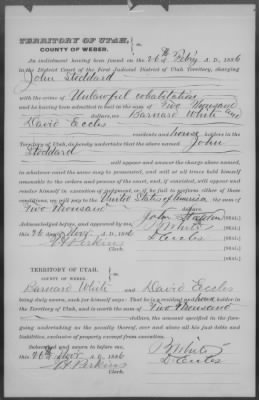 TERRITORY OF UTAH,
COUNTY OF WEBER.
An indictment having been found on the 26th Feb'y A. D., 1886
in the District Court of the First Judicial District of Utah Territory, charging
John Stoddard
with the crime of Unlawful cohabitation
and he having been admitted to bail in the sum of Five Thousand
dollars, we Barnard White and
David Eccles
residents and house holders in the
Territory of Utah, do hereby undertake that the above named John
Stoddard
will appear and answer the charge above named,
in whatever court the same may be prosecuted, and will at all times hold himself
amenable to the orders and process of the court, and if convicted, will appear and
render himself in execution of judgment, or if he fail to perform either of these
conditions, we will pay to the United States of America, the sum of
Five Thousand dollars.
Acknowledged before, and approved by me,
John [SEAL.]
this 26 Nov. A. D. 1886 B White [SEAL.]
Perkins D Eccles [SEAL.]
Clerk. [SEAL.]
TERRITORY OF UTAH.
COUNTY OF WEBER.
Barnard White and David Eccles
being duly sworn, each for himself says: That he is a resident and house holder in
the Territory of Utah, and is worth the sum of Five Thousand
dollars, the amount specified in the fore-
going undertaking as the penalty thereof, over and above all his just debts and
liabilities, exclusive of property exempt from execution.
Subscribed and sworn to before me, this
26 Nov. A. D. 1886 B White
Perkins D Eccles
Clerk.